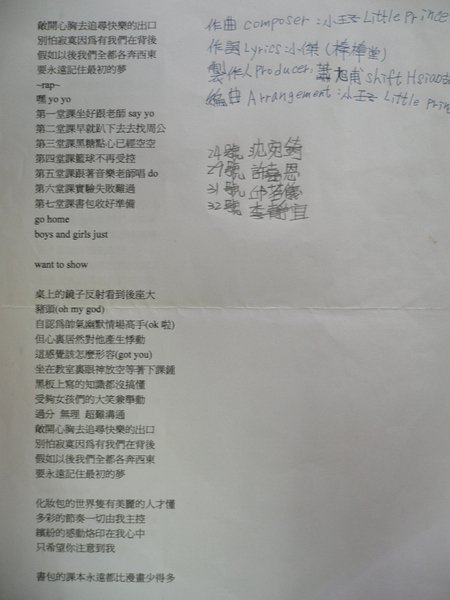 敞開心胸去追尋快樂的出口
別怕寂寞因為有我們在背後
假如以後我們全都各奔西東
要永遠記住最初的夢
~rap~
嘿 yo yo
第一堂課坐好跟老師 say yo
第二堂課早就趴下去去找周公
第三堂課黑糖點心已經空空
第四堂課籃球不再受控
第五堂課跟著音樂老師唱 do
第六堂課實驗失敗難過
第七堂課書包收好準備
go home
boys and girls just
want to show
桌上的鏡子反射看到後座大
豬頭(oh my god)
自認為帥氣幽默情場高手(ok 啦)
但心裏居然對他產生悸動
這感覺該怎麼形容(got you)
坐在教室裏眼神放空等著下課鐘
黑板上寫的知識都沒搞懂
受夠女孩們的大笑兼舉動
過分 無理 超難溝通
敞開心胸去追尋快樂的出口
別怕寂寞因為有我們在背後
假如以後我們全都各奔西東
要永遠記住最初的夢
化妝包的世界隻有美麗的人才懂
多彩的節奏一切由我主控
繽紛的感動烙印在我心中
只希望你注意到我
書包的課本永遠都比漫畫少得多
作曲 composer:小王子 Little Prince
作詞 Lyrics:小傑(棒棒堂)
製作人 Producer:蕭旭甫 shift Hsiao
編曲 Arrangement:小王子 Little Prin
24號 沈宛錡
29號 許嘉恩
31號 邱若儀
32號 李靜宜